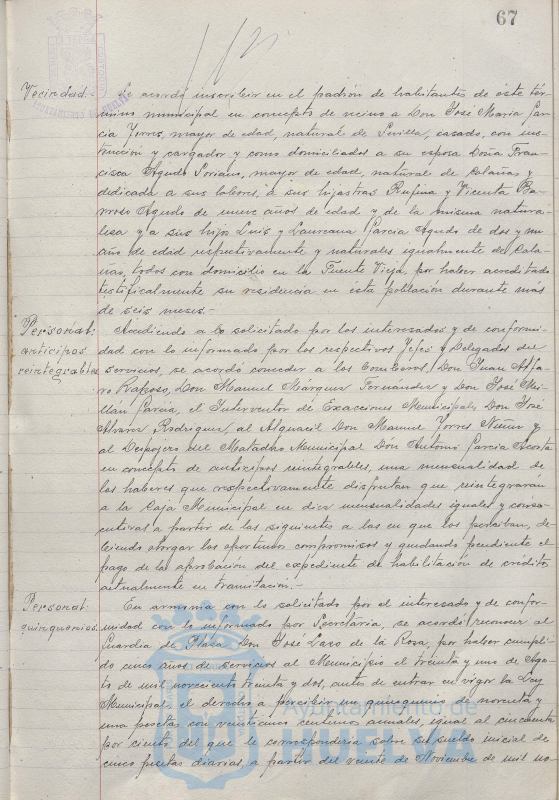 67
Vecindad.- Se acordó inscribir en el padrón de habitantes de éste tér-
mino municipal en concepto de vecino a Don José María Gar-
cia Torres, mayor de edad, natural de Sevilla, casado, con ins-
trucción y cargador y como domiciliados a su esposa Doña Fran-
cisca Agudo Soriano, mayor de edad, natural de Calañas y
dedicada a sus labores, a sus hijastras Rufina y Vicenta
Agudo de nueve años de edad y de la misma natura-
leza y a sus hijos Luis y Laureana Garcia Agudo de dos y un
año de edad respectivamente y naturales igualmente de Cala-
ñas, todos con domicilio en la Fuente Vieja, por haber acreditado
testificalmente su residencia en ésta población durante más
de seis meses.-
Personal: Accediendo a lo solicitado por los interesados y de conformi-
anticipos dad con lo informado por los respectivos Jefes y Delegados de
reintegrables servicios, se acordó conceder a los Bomberos Don Juan
Don Manuel Márquez Fernández y Don José Mi-
llán García, el Interventor de Exacciones Municipales Don José
Alvarez Rodriguez, al Alguacil Don Manuel Torres Nuñez y
al Despojero del Matadero Municipal Don Antonio Garcia Acosta
en concepto de anticipos reintegrables, una mensualidad de
los haberes que respectivamente disfrutan que reintegraran
a la Caja Municipal en diez mensualidades iguales y conse-
cutivas a partir de las siguientes a las en que los perciban, de-
biendo otorgar los oportunos compromisos y quedando pendiente el
pago de la aprobación del expediente de habilitación de créditos
actualmente en tramitación.-
Personal: En armonia con lo solicitado por el interesado y de confor-
quinquenios. midad con lo informado por Secretaría, se acordó reconocer al
Guardia de Plaza Don José Lazo de la Rosa, por haber cumpli-
do cinco años de servicios al Municipio el treinta y uno de Agos-
to de mil novecientos treinta y dos, antes de entrar en vigor la Ley
Municipal, el derecho a percibir un quinquenio de noventa y
una pesetas con veinticinco centimos anuales, igual al cincuenta
por ciento del que le correspondería sobre su sueldo inicial de
cinco pesetas diarias, a partir del veinte de Noviembre de mil no
Ayuntamiento de
HUELVA